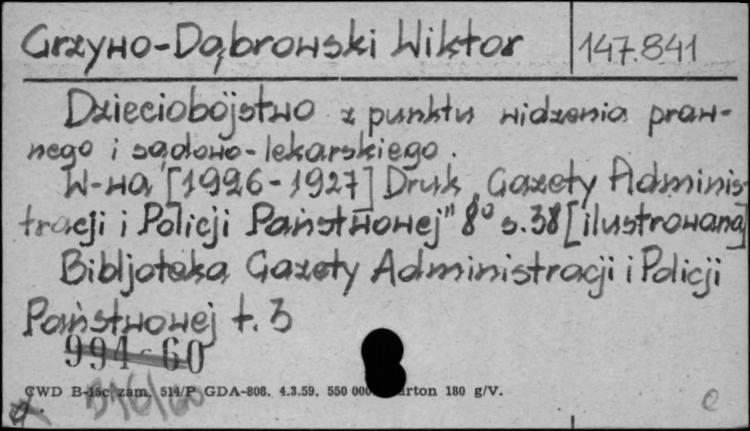 Grzywo-Dąbrowski Wiktor 147.841
Dzieciobójstwo z punktu widzenia praw-
nego i sądowo-lekarskiego.
W-wa [1926-1927] Druk "Gazety Adminis
tracji i Policji Państwowej" 8° s.38 [ilustrowana]
Bibljoteka Gazety Administracji i Policji
Państwowej t. 3
994 60
CWD B-15c zam. 514/P GDA-808. 4.3.59. 550 000 arton 180 g/V.
e